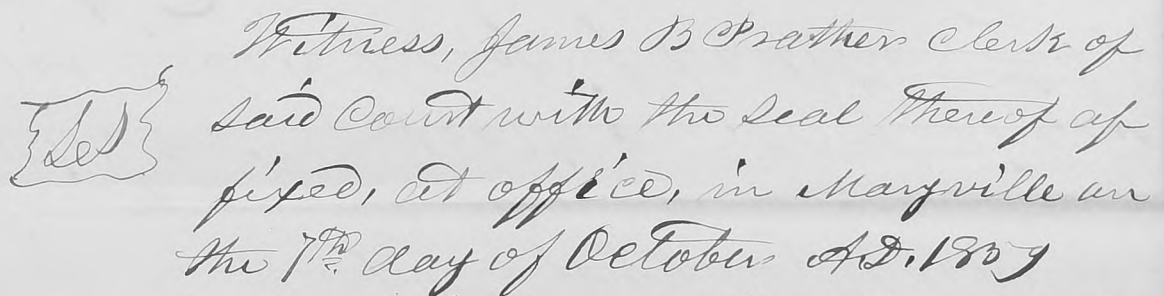 Witness, James B Prather Clerk of
said Court with the seal thereof af
fixed, at office, in Maryville on
the 7th day of October A.D. 1859